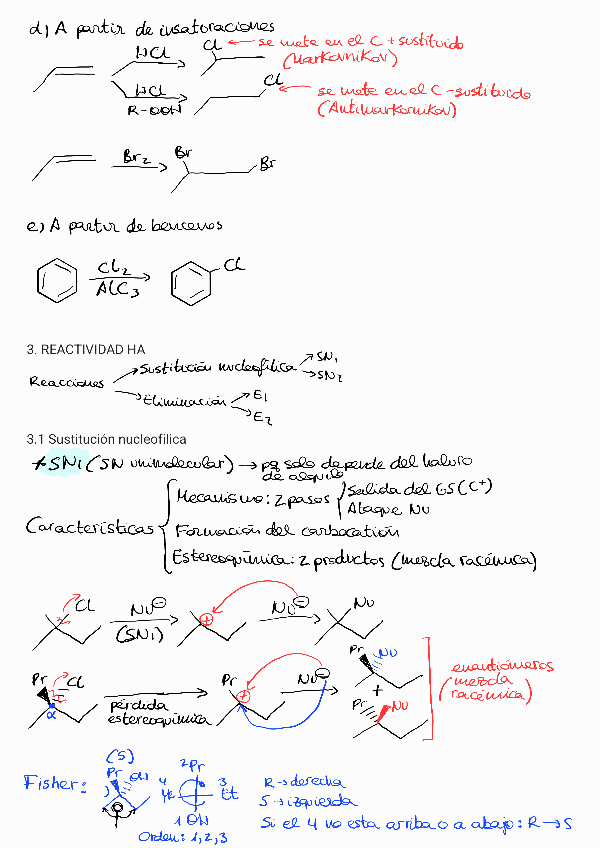 d) A partir de insaturaciones
HCl
Cl ← se mete en el C + sustituido
(Markovnikov)
HCl
R-OOH
Cl ← se mete en el C - sustituido
(Antimarkovnikov)
Br2
Br
Br
e) A partir de bencenos
Cl2
AlC3
Cl
3. REACTIVIDAD HA
Reacciones
Sustitución nucleofílica
SN1
SN2
Eliminación
E1
E2
3.1 Sustitución nucleofílica
* SN1 (SN unimolecular) → pq solo depende del haluro
de alquilo
Características
Mecanismo: 2 pasos
Salida del GS (C+)
Ataque Nu
Formación del carbocatión
Estereoquímica: 2 productos (mezcla racémica)
Cl
Nu⊖
(SN1)
⊕
Nu⊖
Nu
Pr
Cl
α
pérdida
estereoquímica
Pr
⊕
Nu⊖
Pr
Nu
+
Pr
Nu
enantiómeros
(mezcla
racémica)
Fisher:
(S)
Pr
OH
2Pr
4
Me
3
Et
1 OH
Orden: 1, 2, 3
R → derecha
S → izquierda
Si el 4 no esta arriba o a abajo: R → S